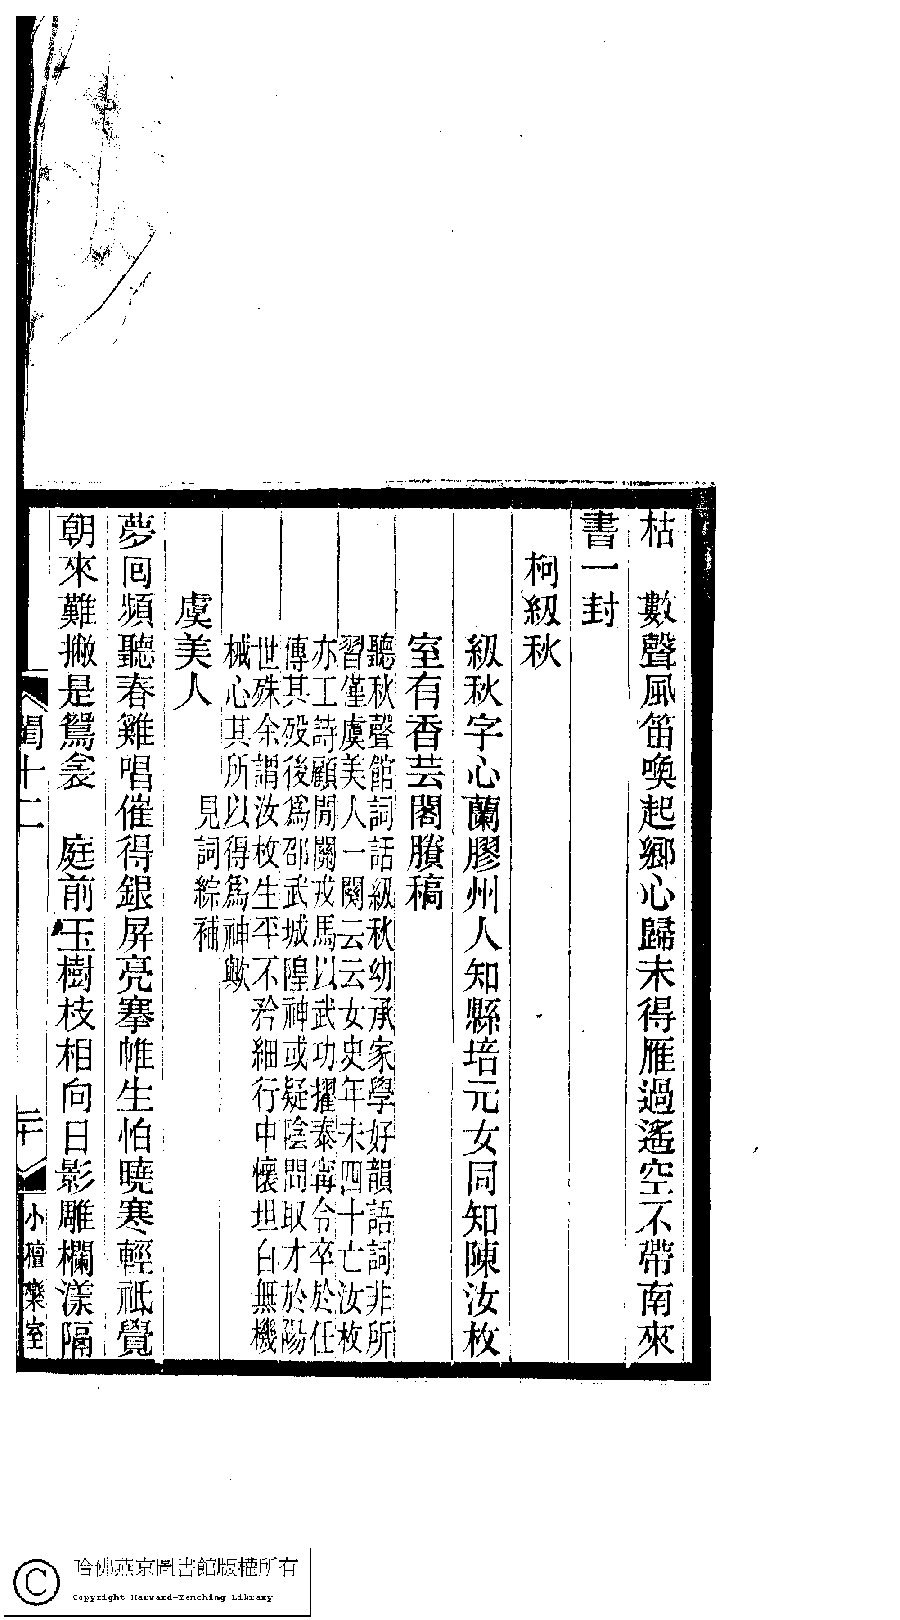 枯　數聲風笛喚起鄉心歸未得雁過遙空不帶南來
書一封
柯級秋
級秋字心蘭膠州人知縣培元女同知陳汝枚
室有香芸閣賸稿
聽秋聲館詞話級秋幼承家學好韻語詞非所
習僅虞美人一闋云云女史年未四十亡汝枚
亦工詩顧閒關戎馬以武功擢泰寗令卒於任
傳其歿後爲邵武城隍神或疑陰間取才於陽
世殊余謂汝枚生平不矜細行中懷坦白無機
械心其所以得爲神歟
見詞綜補
虞美人
夢回頻聽春雞唱催得銀屏亮搴帷生怕曉寒輕祗覺
朝來難撇是鴛衾　庭前玉樹枝相向日影雕欄漾隔
閨十二
二十
小檀欒室
哈佛燕京圖書館版權所有
Copyright Harvard-Yenching Library